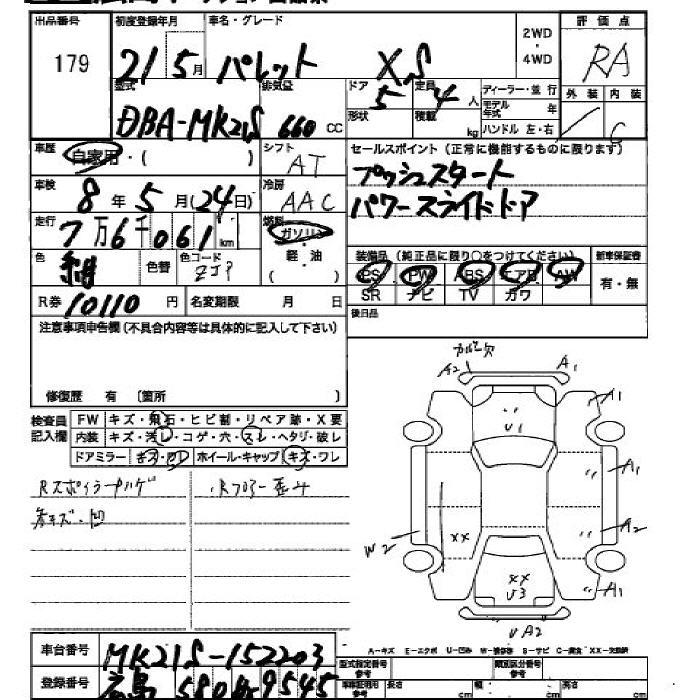 出品番号 初度登録年月 車名・グレード 2WD・4WD 評価点
179 21 5月 パレット XS RA
型式 排気量 ドア 定員 ディーラー・並行 外装 内装
DBA-MK21S 660 CC 5 4人 モデル年式 年 C
形状 積載 kg ハンドル 左・右
車歴 自家用・( ) シフト AT
セールスポイント(正常に機能するものに限ります)
プッシュスタート
パワースライドドア
車検 8年 5月(24日) 冷房 AAC
走行 7万6千061km 燃料 ガソリン 軽・油 ( )
色 色替 色コード ZJP
装備品(純正品に限り○をつけてください) 新車保証書
PS PW ABS エアB AW 有・無
SR ナビ TV ガワ
R券 10110円 名変期限 月 日
後日品
注意事項申告欄(不具合内容等は具体的に記入して下さい)
修復歴 有 〔箇所 〕
検査員記入欄 FW キズ・飛石・ヒビ割・リペア跡・X要
内装 キズ・汚レ・コゲ・穴・スレ・ヘタリ・破レ
ドアミラー キズ・ワレ ホイール・キャップ キズ・ワレ
Rスポイラーハゲ
R フロアー歪み
各キズ・凹
カルモ欠
A2 A1
A1
U1
A1
XX
W2
A2
XX
U3
A1
U A2
A-キズ E-エクボ U-凹み W-補修跡 S-サビ C-腐食 XX-交換済
車台番号 MK21S-152203
型式指定番号 参考 類別区分番号 参考
登録番号 広島 580 9545
長さ cm 幅 cm 高さ cm